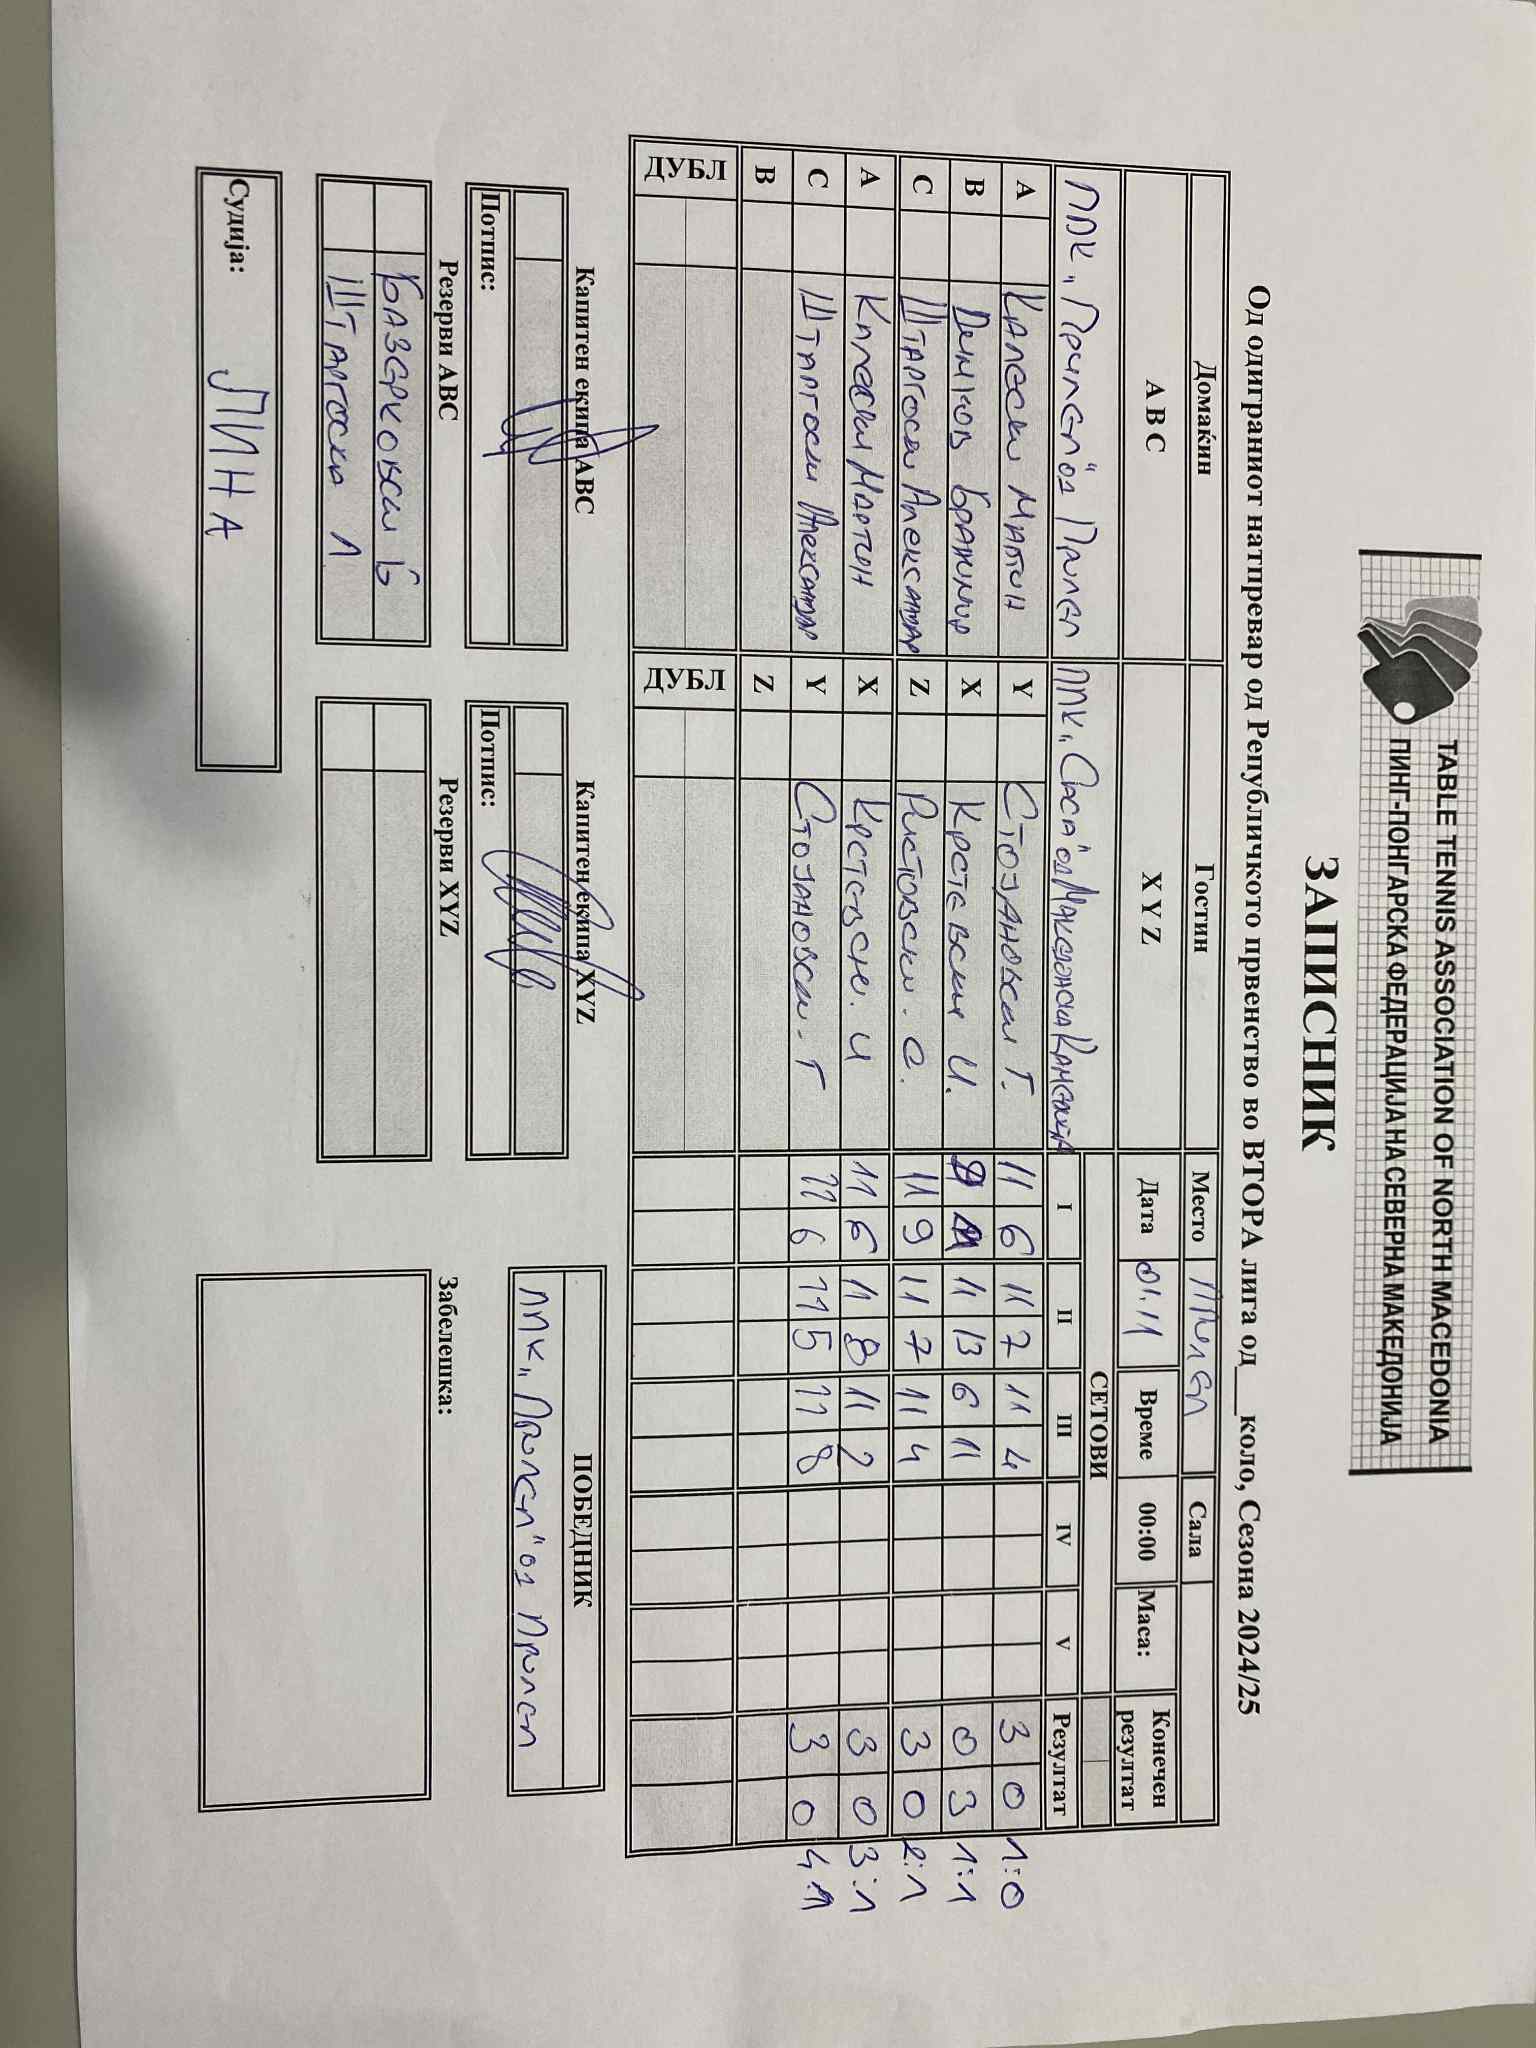 TABLE TENNIS ASSOCIATION OF NORTH MACEDONIA
ПИНГ-ПОНГАРСКА ФЕДЕРАЦИЈА НА СЕВЕРНА МАКЕДОНИЈА
ЗАПИСНИК
Од одиграниот натпревар од Републичкото првенство во ВТОРА лига од ___ коло, Сезона 2024/25
Домаќин Гостин Место Прилеп Сала
A B C X Y Z Дата 01.11 Време 00:00 Маса: Конечен резултат
ППК „Прилеп" од Прилеп ППК „Саса" од Македонска Каменица СЕТОВИ
I II III IV V Резултат
A Калески Мартин Y Стојановски Т. 11 6 11 7 11 4 3 0 1:0
B Димков Бранимир X Крстевски И. 11 13 6 11 0 3 1:1
C Штаргоски Александар Z Ристовски . С. 11 9 11 7 11 4 3 0 2:1
A Калески Мартин X Крстевски . И 11 6 11 8 11 2 3 0 3:1
C Штаргоски Александар Y Стојановски . Т 11 6 11 5 11 8 3 0 4:1
B Z
ДУБЛ ДУБЛ
Капитен екипа ABC Капитен екипа XYZ ПОБЕДНИК
ППК „Прилеп" од Прилеп
Потпис: Потпис:
Резерви ABC Резерви XYZ Забелешка:
Базерковски Б
Штаргоска Л
Судија: ЛИНА